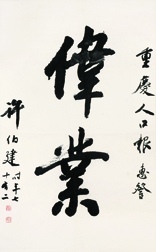 重慶人口報惠餐
偉業
許伯建
時年七
十有二